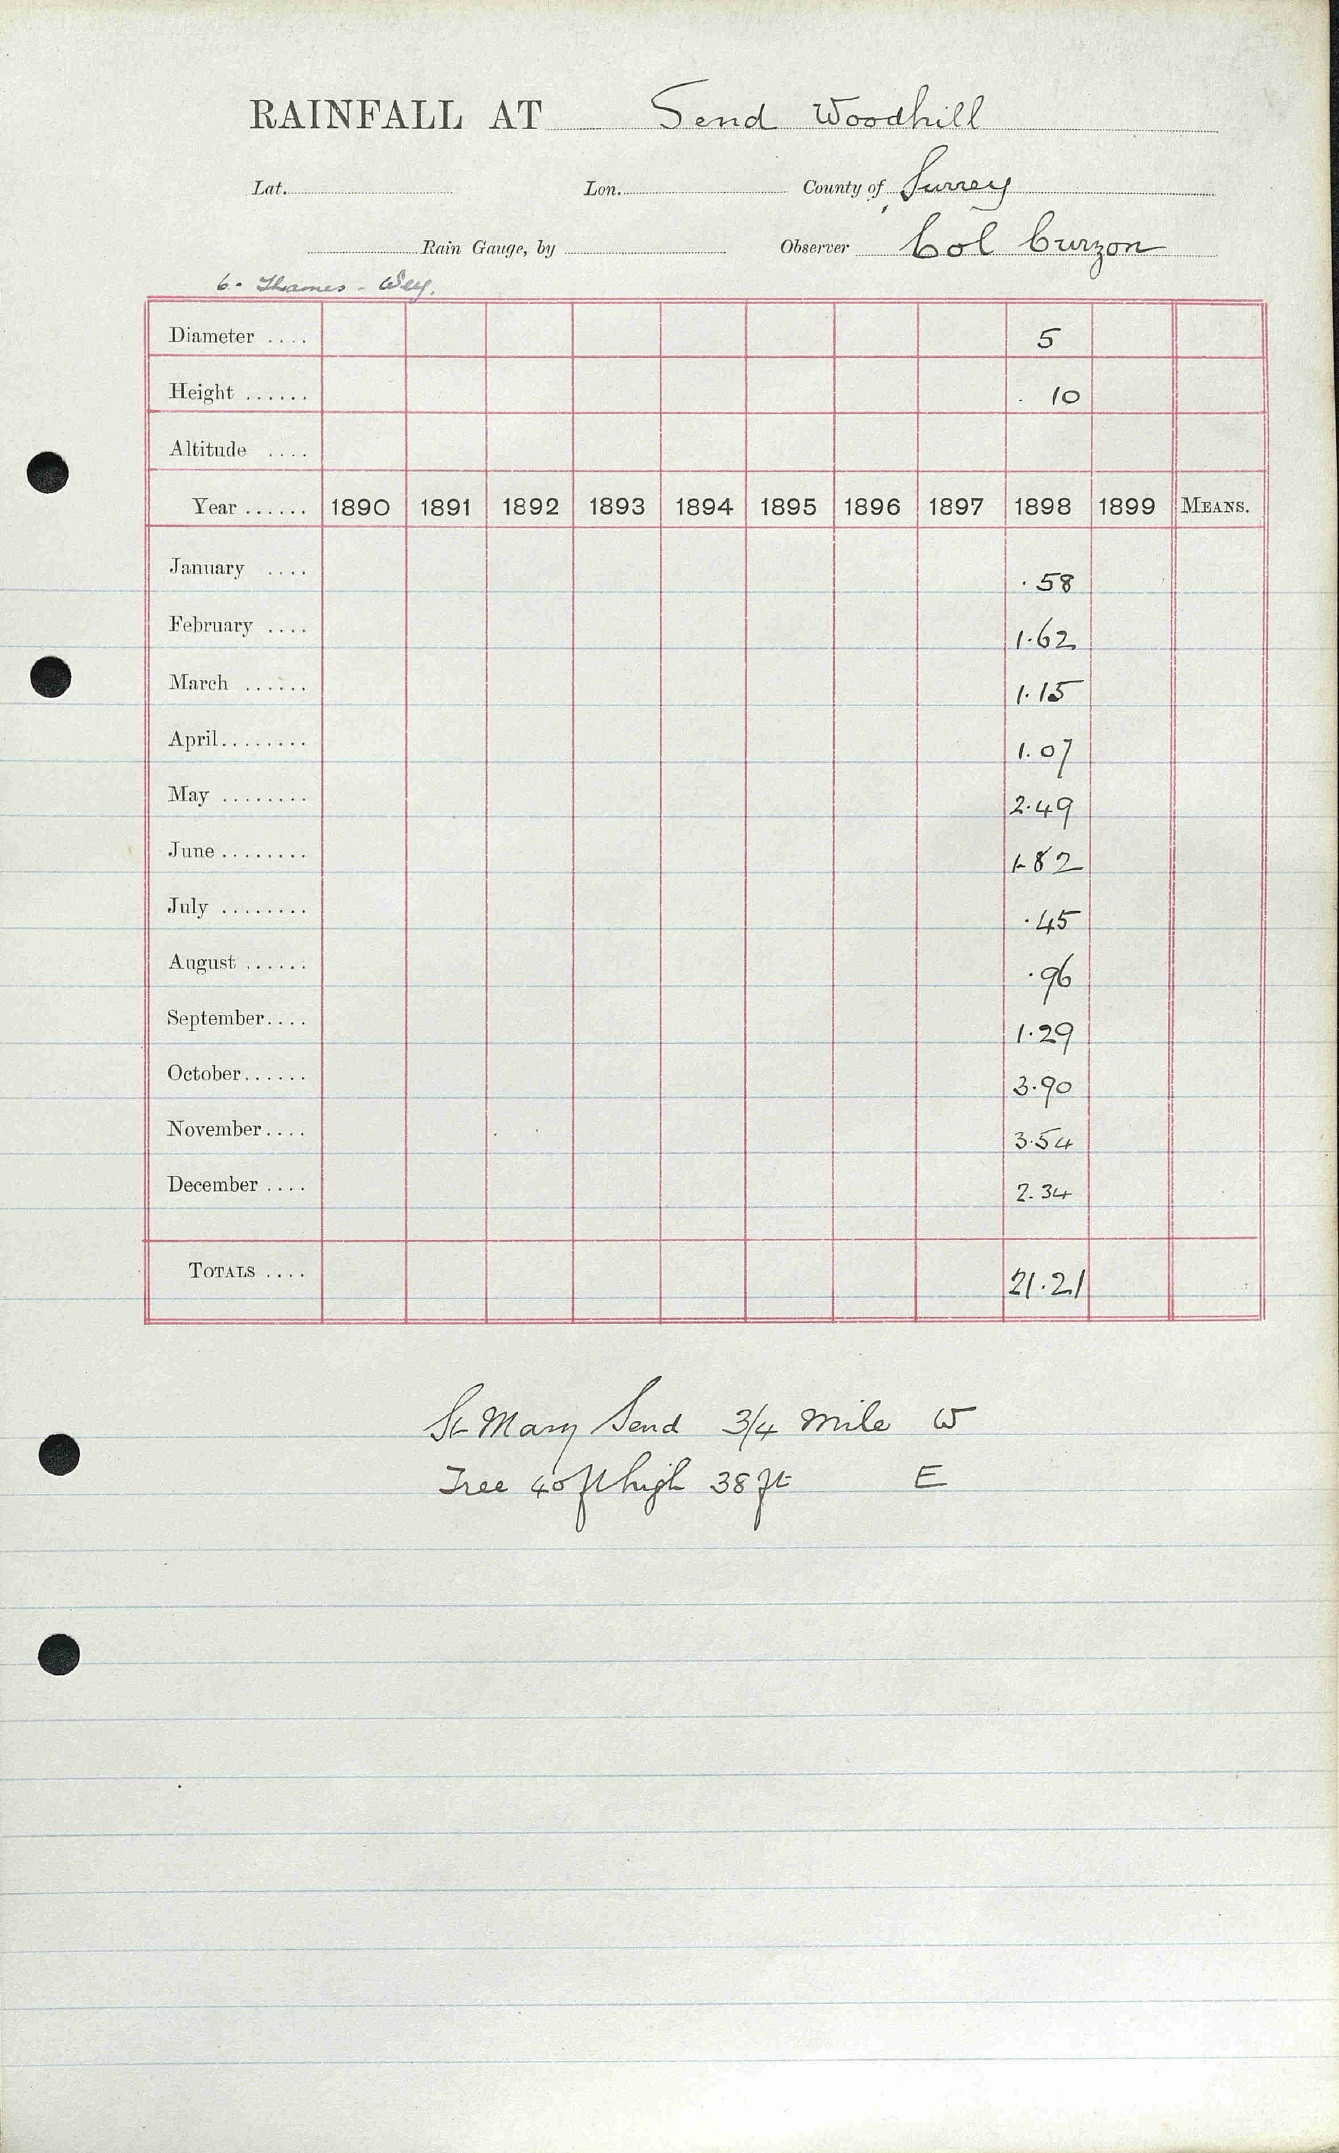 RAINFALL AT Send Woodhill
Lat. Lon. County of Surrey
Rain Gauge, by Observer Col Curzon
6. Thames - Wey.
Diameter .... 5
Height ...... 10
Altitude ....
Year ...... 1890 1891 1892 1893 1894 1895 1896 1897 1898 1899 MEANS.
January .... .58
February .... 1.62
March ...... 1.15
April........ 1.07
May ........ 2.49
June ........ 1.82
July ........ .45
August ...... .96
September.... 1.29
October...... 3.90
November.... 3.54
December .... 2.34
TOTALS .... 21.21
St Mary Send 3/4 Mile W
Tree 40ft high 38 ft E